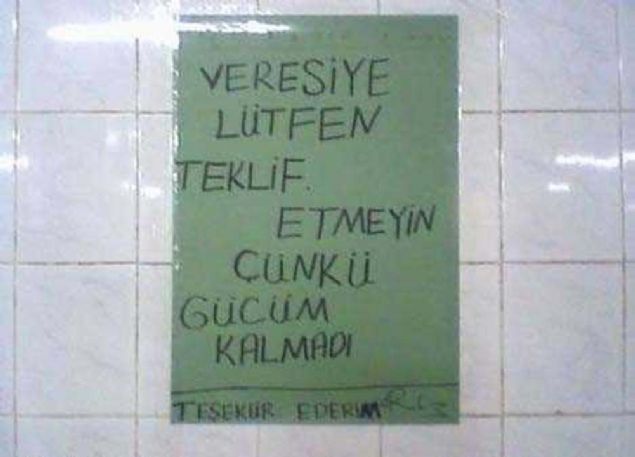 VERESİYE
LÜTFEN
TEKLİF.
ETMEYİN
ÇÜNKÜ
GÜCÜM
KALMADI
TEŞEKÜR EDERIM